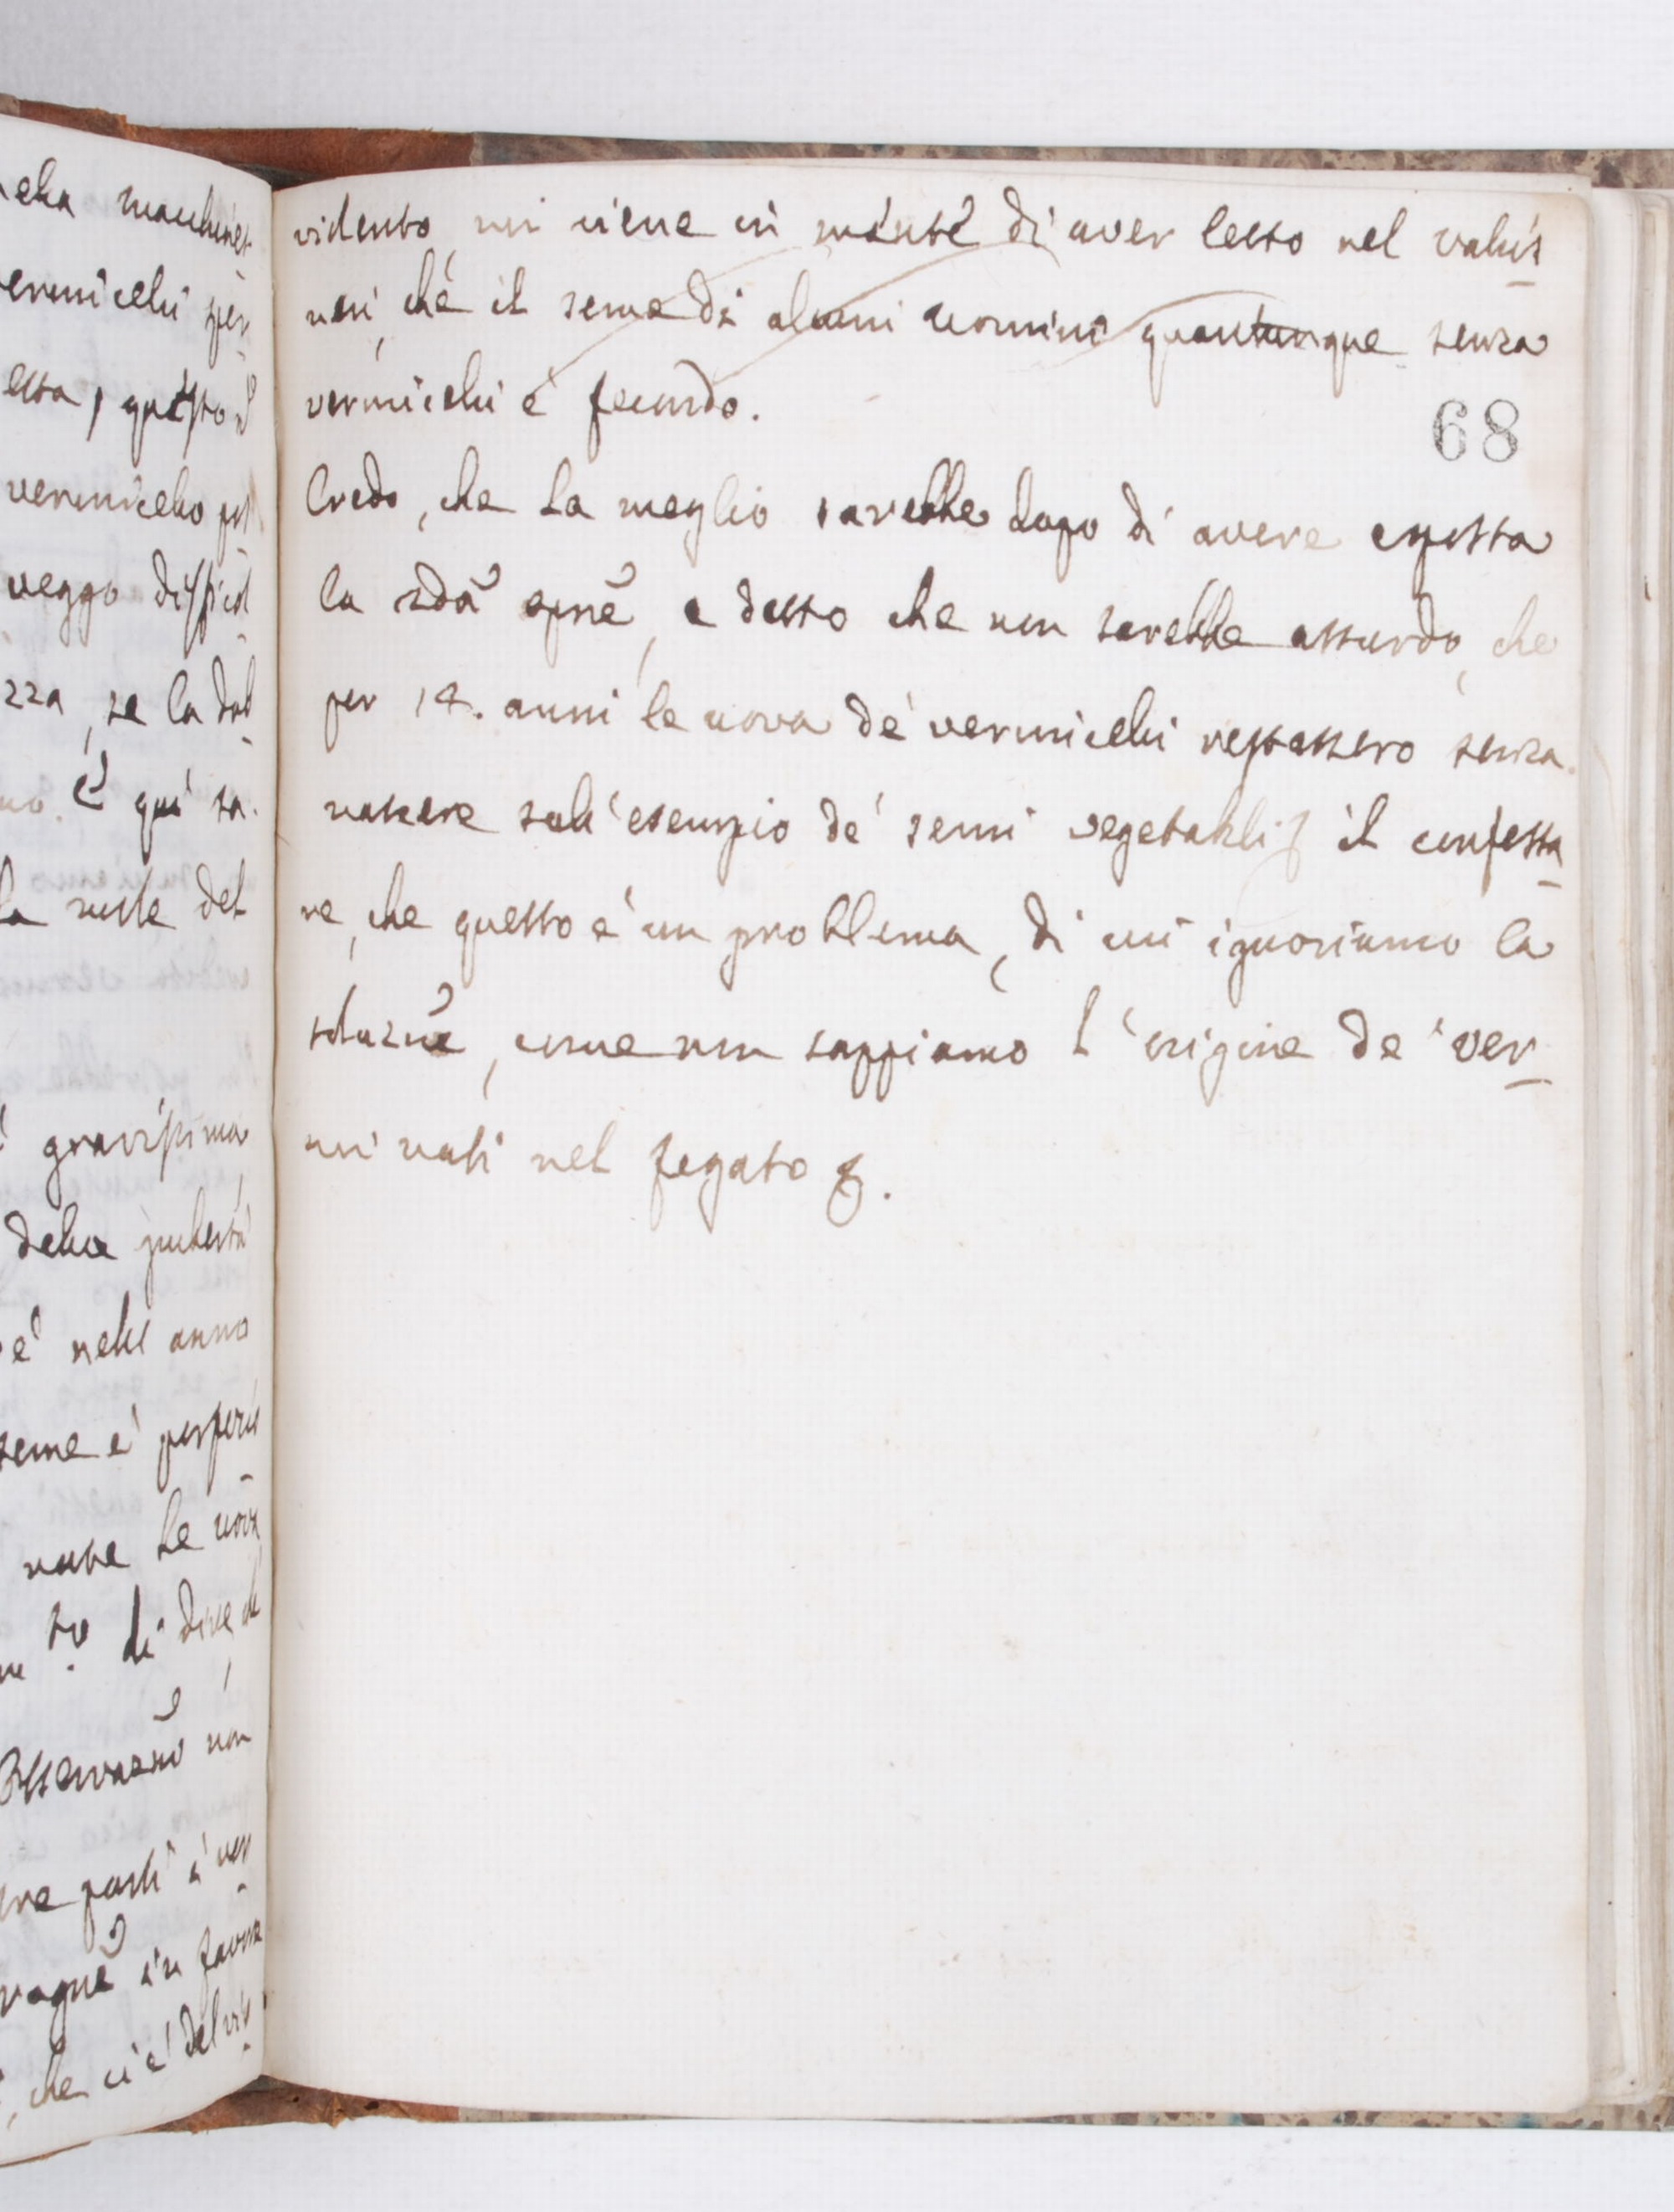 ella macchinet-
ermicelli per
esta, questo è
vermicello pos
veggo difficol-
zza, se la dol-
no. È qui sa.
la nelle del
è gravissima
della pubertà
è nell anno
seme è perfect
nate le uova
to. di dire, che
Osservazni non
tre parti i ver-
ragne in favore
, che ci è del vis-
vidento, mi viene in mente di aver letto nel valis-
neri, che il seme di alcuni uomini quantunque senza
vermicelli è fecundo.
68
Credo, che la meglio sarebbe dopo di avere esposta
la sdã opnẽ, e detto che non sarebbe assurdo, che
per 14. anni le uova de' vermicelli restassero senza
nascere sull'esempio de' semi vegetabli, il confessa-
re, che questo è un problema, di cui ignoriamo la
soluznẽ, come non sappiamo l'origine de' ver-
mi nati nel fegato &.